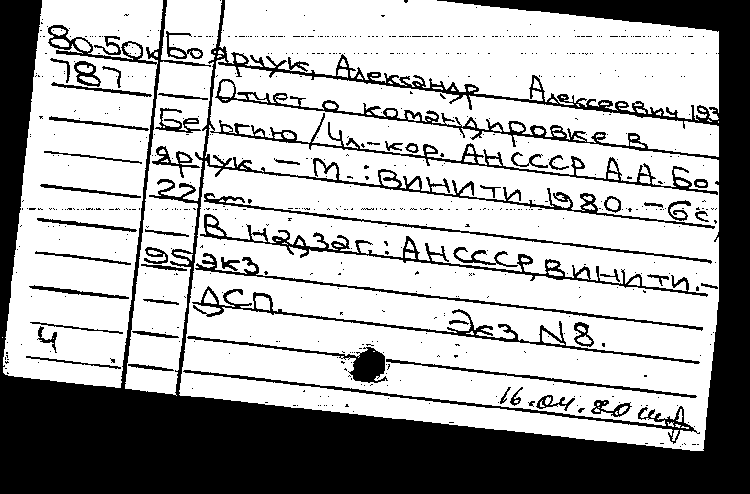 80-50к Боярчук, Александр Алексеевич, 193
787 Отчет о командировке в
Бельгию / Чл.-кор. АНСССР А.А. Бо-
ярчук. - М.: ВИНИТИ, 1980. - 6 с.,
22 см.
В надзаг.: АНСССР, ВИНИТИ. -
95 экз.
ДСП. Экз. N 8.
4
16.04.80